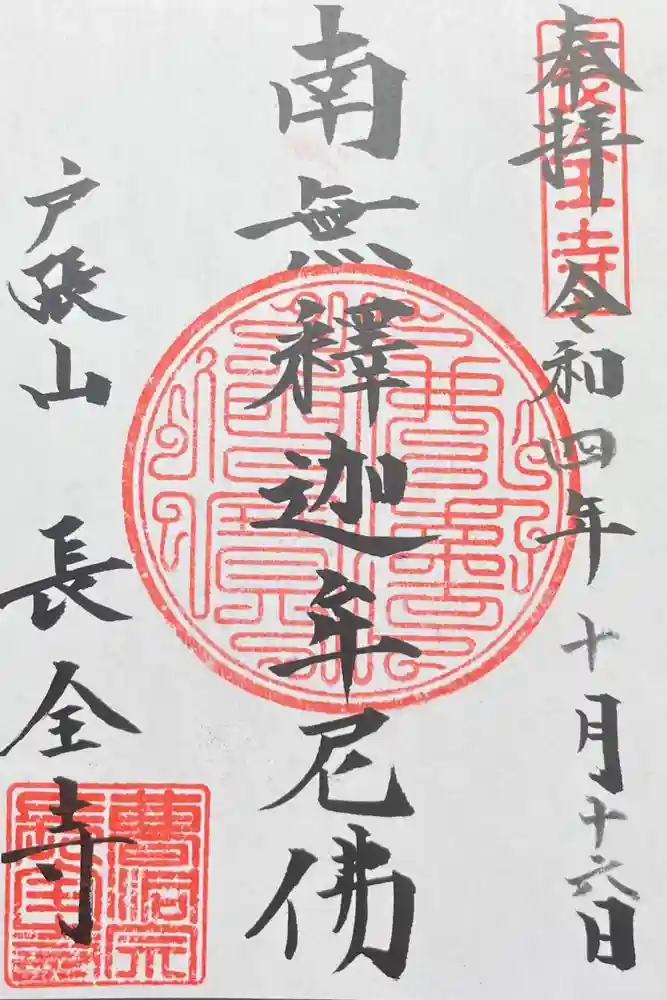 奉拝 令和四年十月十六日
南無釋迦牟尼佛
戸張山 長全寺
曹洞宗
長全寺